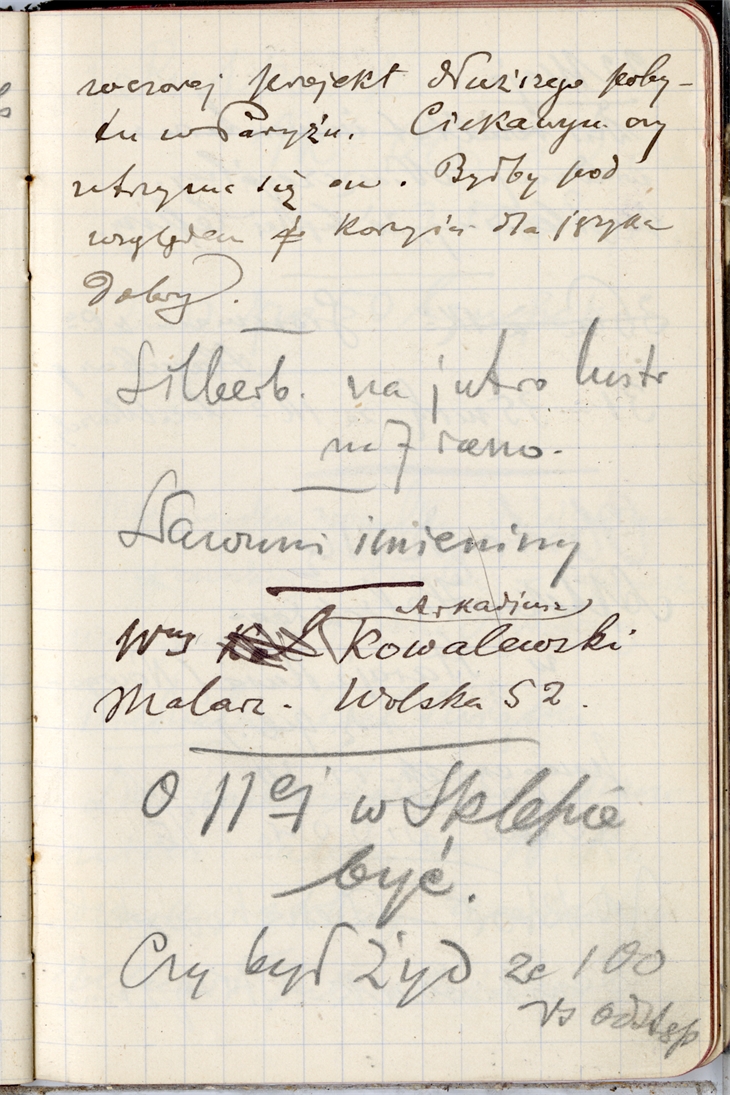 wczoraj projekt dłuższego poby-
tu w Paryżu. Ciekawym czy
utrzyma się on. Byłby pod
względem korzyści dla języka
dobry.
Silberb. na jutro lustr
na 7 rano.
imieniny
Arkadiusz
Kowalewski
Malarz. Wolska 52.
O 11ej w Sklepie
być.
Czy był Żyd ze 100
rs odstęp